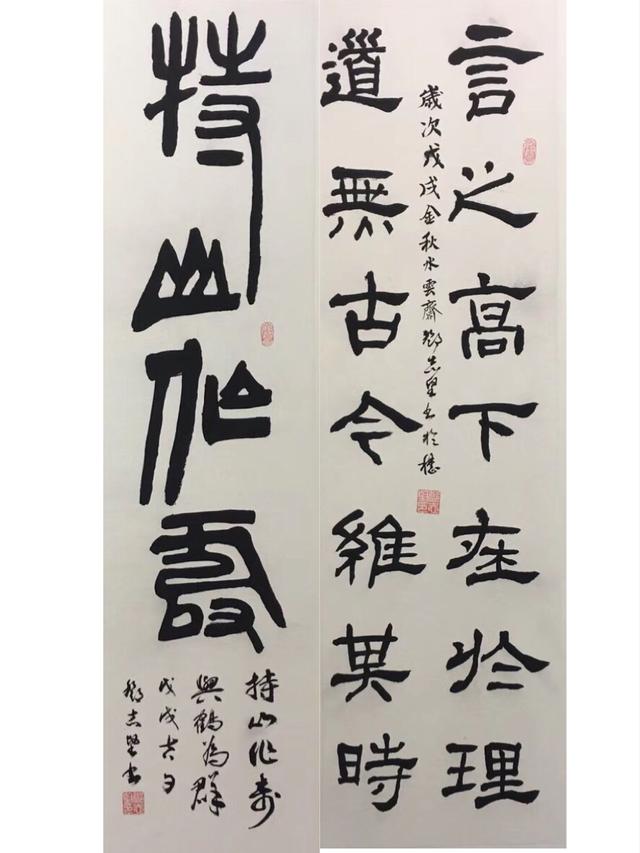 言之高下在於理
道無古今維其時
歲次戊戌金秋水雲齋鄧志堅書於穗
持山作壽
持山作壽
與鶴為群
戊戌吉日
鄧志堅書